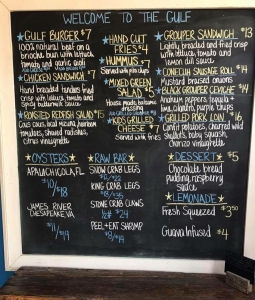 WELCOME TO THE GULF
GULF BURGER $7
100% natural beef on a
brioche bun with lettuce,
tomato and garlic aioli
CHICKEN SANDWICH $7
Hand breaded tenders fried
crisp with lettuce, tomato and
spicy buttermilk sauce
ROASTED REDFISH SALAD $15
Cous cous, local mizuna, heirloom
tomatoes, shaved radishes,
citrus vinaigrette
HAND CUT
FRIES $4
HUMMUS $7
Served with pita chips
MIXED GREEN
SALAD $5
House made balsamic
dressing
KIDS GRILLED
CHEESE $7
Served with fries
GROUPER SANDWICH $13
Lightly breaded and fried crisp
with lettuce, tomato and
lemon dill sauce
CONECUH SAUSAGE ROLL $14
Mustard braised onions
BLACK GROUPER CEVICHE $14
Anaheim peppers, tequila +
lime, cilantro, purple chips
GRILLED PORK LOIN $16
Confit potatoes, charred wild
shallots, baby squash,
chorizo vinaigrette
OYSTERS
APALACHICOLA, FL
$10/$18
JAMES RIVER,
CHESAPEAKE, VA
$11/$19
RAW BAR
SNOW CRAB LEGS
KING CRAB LEGS
STONE CRAB CLAWS
1/2# $24
PEEL+EAT SHRIMP
$8/$14
DESSERT $5
Chocolate bread
pudding, raspberry
sauce
LEMONADE
Fresh Squeezed $3.50
Guava Infused $4